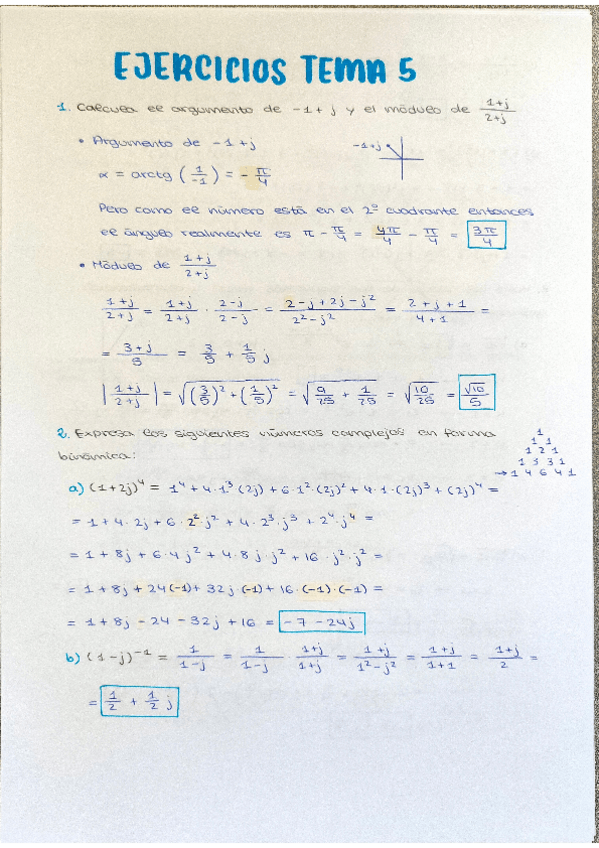 EJERCICIOS TEMA 5
1. Calcula el argumento de -1 + j y el módulo de (1+j)/(2+j)
• Argumento de -1 + j
-1+j
α = arctg (1/-1) = - π/4
Pero como el número está en el 2º cuadrante entonces
el ángulo realmente es π - π/4 = 4π/4 - π/4 = 3π/4
• Módulo de (1+j)/(2+j)
(1+j)/(2+j) = (1+j)/(2+j) · (2-j)/(2-j) = (2-j+2j-j²)/(2²-j²) = (2+j+1)/(4+1) =
= (3+j)/5 = 3/5 + 1/5 j
|(1+j)/(2+j)| = √((3/5)² + (1/5)²) = √(9/25 + 1/25) = √(10/25) = √10/5
2. Expresa los siguientes números complejos en forma
binómica:
1
1 1
1 2 1
1 3 3 1
→ 1 4 6 4 1
a) (1+2j)⁴ = 1⁴ + 4·1³(2j) + 6·1²·(2j)² + 4·1·(2j)³ + (2j)⁴ =
= 1 + 4·2j + 6·2²·j² + 4·2³·j³ + 2⁴·j⁴ =
= 1 + 8j + 6·4j² + 4·8j·j² + 16·j²·j² =
= 1 + 8j + 24(-1) + 32j(-1) + 16·(-1)·(-1) =
= 1 + 8j - 24 - 32j + 16 = -7 - 24j
b) (1-j)⁻¹ = 1/(1-j) = 1/(1-j) · (1+j)/(1+j) = (1+j)/(1²-j²) = (1+j)/(1+1) = (1+j)/2 =
= 1/2 + 1/2 j